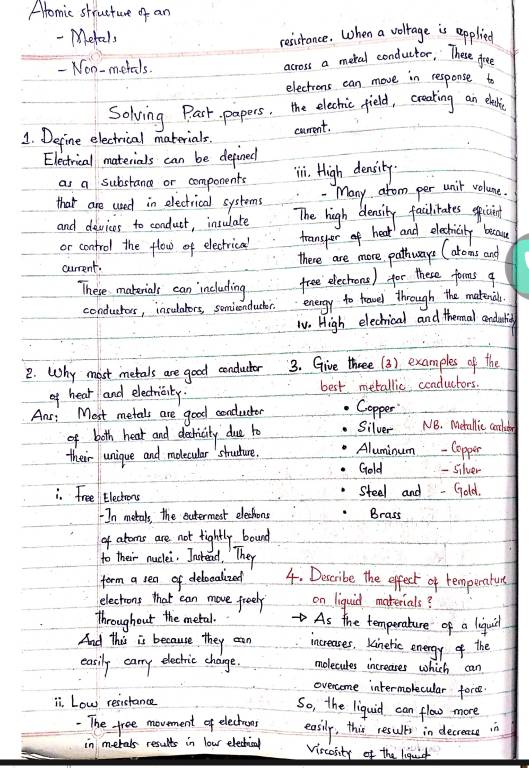 Atomic structure of an
- Metals
- Non-metals.
Solving Past papers.
1. Define electrical materials.
Electrical materials can be defined
as a substance or components
that are used in electrical systems
and devices to conduct, insulate
or control the flow of electrical
current.
These materials can including
conductors, insulators, semiconductor.
2. Why most metals are good conductor
of heat and electricity.
Ans: Most metals are good conductor
of both heat and electricity due to
their unique and molecular structure.
i. Free Electrons
- In metals, the outermost electrons
of atoms are not tightly bound
to their nuclei. Instead, They
form a sea of delocalized
electrons that can move freely
throughout the metal.
And this is because they can
easily carry electric charge.
ii. Low resistance
- The free movement of electrons
in metals results in low electrical
resistance. When a voltage is applied
across a metal conductor, These free
electrons can move in response to
the electric field, creating an electric
current.
iii. High density.
- Many atom per unit volume.
The high density facilitates efficient
transfer of heat and electricity because
there are more pathways (atoms and
free electrons) for these forms of
energy to travel through the materials.
iv. High electrical and thermal conductivity
3. Give three (3) examples of the
best metallic conductors.
• Copper
• Silver NB. Metallic conductor
• Aluminum - Copper
• Gold - Silver
• Steel and - Gold.
• Brass
4. Describe the effect of temperature
on liquid materials?
→ As the temperature of a liquid
increases, kinetic energy of the
molecules increases which can
overcome intermolecular force.
So, the liquid can flow more
easily, this results in decrease in
Viscosity of the liquid